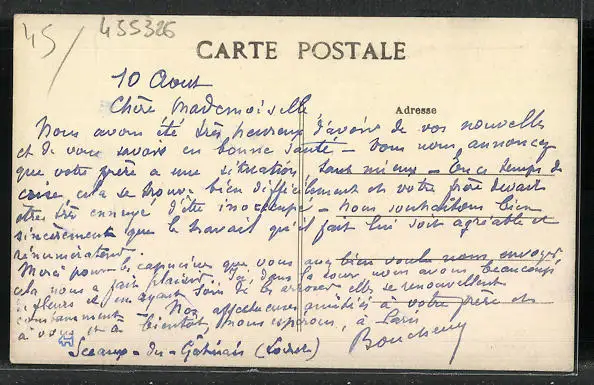 45/
455326
CARTE POSTALE
10 Aout
Chère Mademoiselle
Adresse
Nous avons été très heureux d'avoir de vos nouvelles
et de vous savoir en bonne santé - Vous nous annoncez
que votre père a une situation, tant mieux - En ce temps de
crise, cela se trouve bien difficilement et votre père devait
être très ennuyé d'être inoccupé - Nous souhaitons bien
sincèrement que le travail qu'il fait lui soit agréable et
rémunérateur.
Merci pour les capucines que vous avez bien voulu nous envoyer
cela nous a fait plaisir. Ici dans la cour nous avons beaucoup
de fleurs et en ayant soin de les arroser elles se renouvellent
constamment - Nos affectueuses amitiés à votre père et
à vous et à bientôt, nous espérons, à Paris
Sceaux-du-Gâtinais (Loiret)